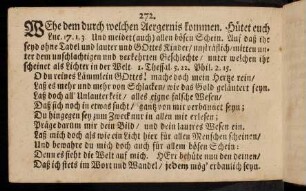 272.
WEhe dem durch welchen Aergernis kommen. Hütet euch
Luc. 17. 1. 3 Und meidet (auch) allen bösen Schein. Auf daß ihr
seyd ohne Tadel und lauter und GOttes Kinder / unsträflich mitten un-
ter dem unschlachtigen und verkehrten Geschlechte / unter welchen ihr
scheinet als Lichter in der Welt. 1. Thessal. 5. 22. Phil. 2. 15.
O du reines Lämmlein GOttes! mache doch mein Hertze rein/
Laß es mehr und mehr von Schlacken/ wie das Gold geläutert seyn.
Laß doch all' Unlauterkeit / alles eigne falsche Wesen/
Daß sich noch in etwas sucht/ gantz von mir verbannet seyn;
Du hingegen sey zum Zweck nur in allen mir erlesen;
Präge darum mir dein Bild / und dein lautres Wesen ein.
Laß mich doch als wie ein Licht hier für allen Menschen scheinen/
Und bewahre du mich doch auch für allem bösen Schein:
Denn es sieht die Welt auf mich. HErr behüte nun den deinen/
Daß ich stets im Wort und Wandel / jedem mög' erbaulich seyn.